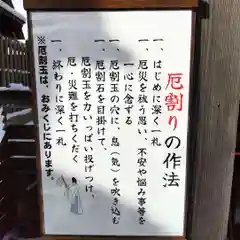 厄割りの作法
一、はじめに深く一礼
一、厄災を祓う思い、不安や悩み事等を
一心に念ずる
一、厄割玉の穴に、息（気）を吹き込む
一、厄割石を目掛けて、
厄割玉を力いっぱい投げつけ、
厄・災難を打ちくだく
一、終わりに深く一礼
※厄割玉は、おみくじにあります。